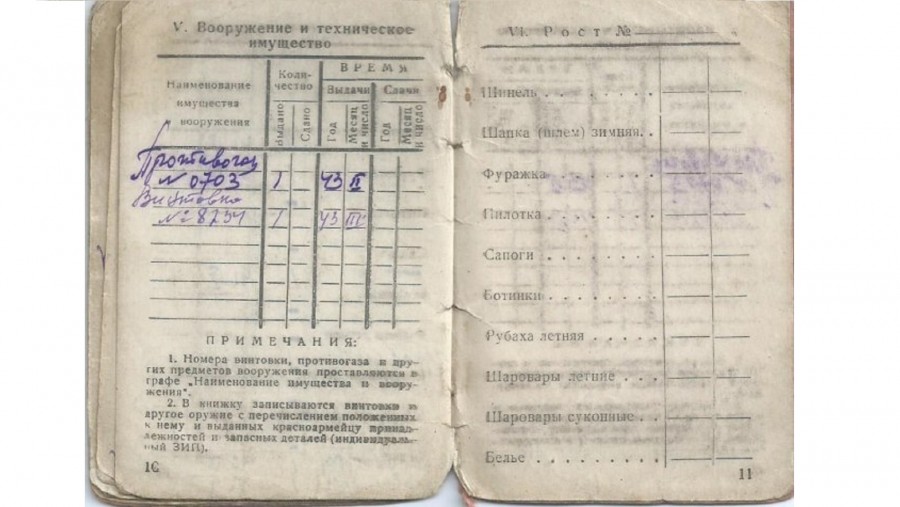 V. Вооружение и техническое
имущество
Наименование
имущества
вооружения
Коли-
чество
ВРЕМЯ
Выдачи
Сдачи
Выдано
Сдано
Год
Месяц
и число
Год
Месяц
и число
Противогаз
№ 0703 1 43 II
Винтовка
№ 8234 1 43 III
ПРИМЕЧАНИЯ:
1. Номера винтовки, противогаза и дру-
гих предметов вооружения проставляются в
графе „Наименование имущества и воору-
жения".
2. В книжку записываются винтовки и
другое оружие с перечислением положенных
к нему и выданных красноармейцу принад-
лежностей и запасных деталей (индивидуаль-
ный ЗИП).
10
VI. Рост №
Шинель
Шапка (шлем) зимняя
Фуражка
Пилотка
Сапоги
Ботинки
Рубаха летняя
Шаровары летние
Шаровары суконные
Белье
11